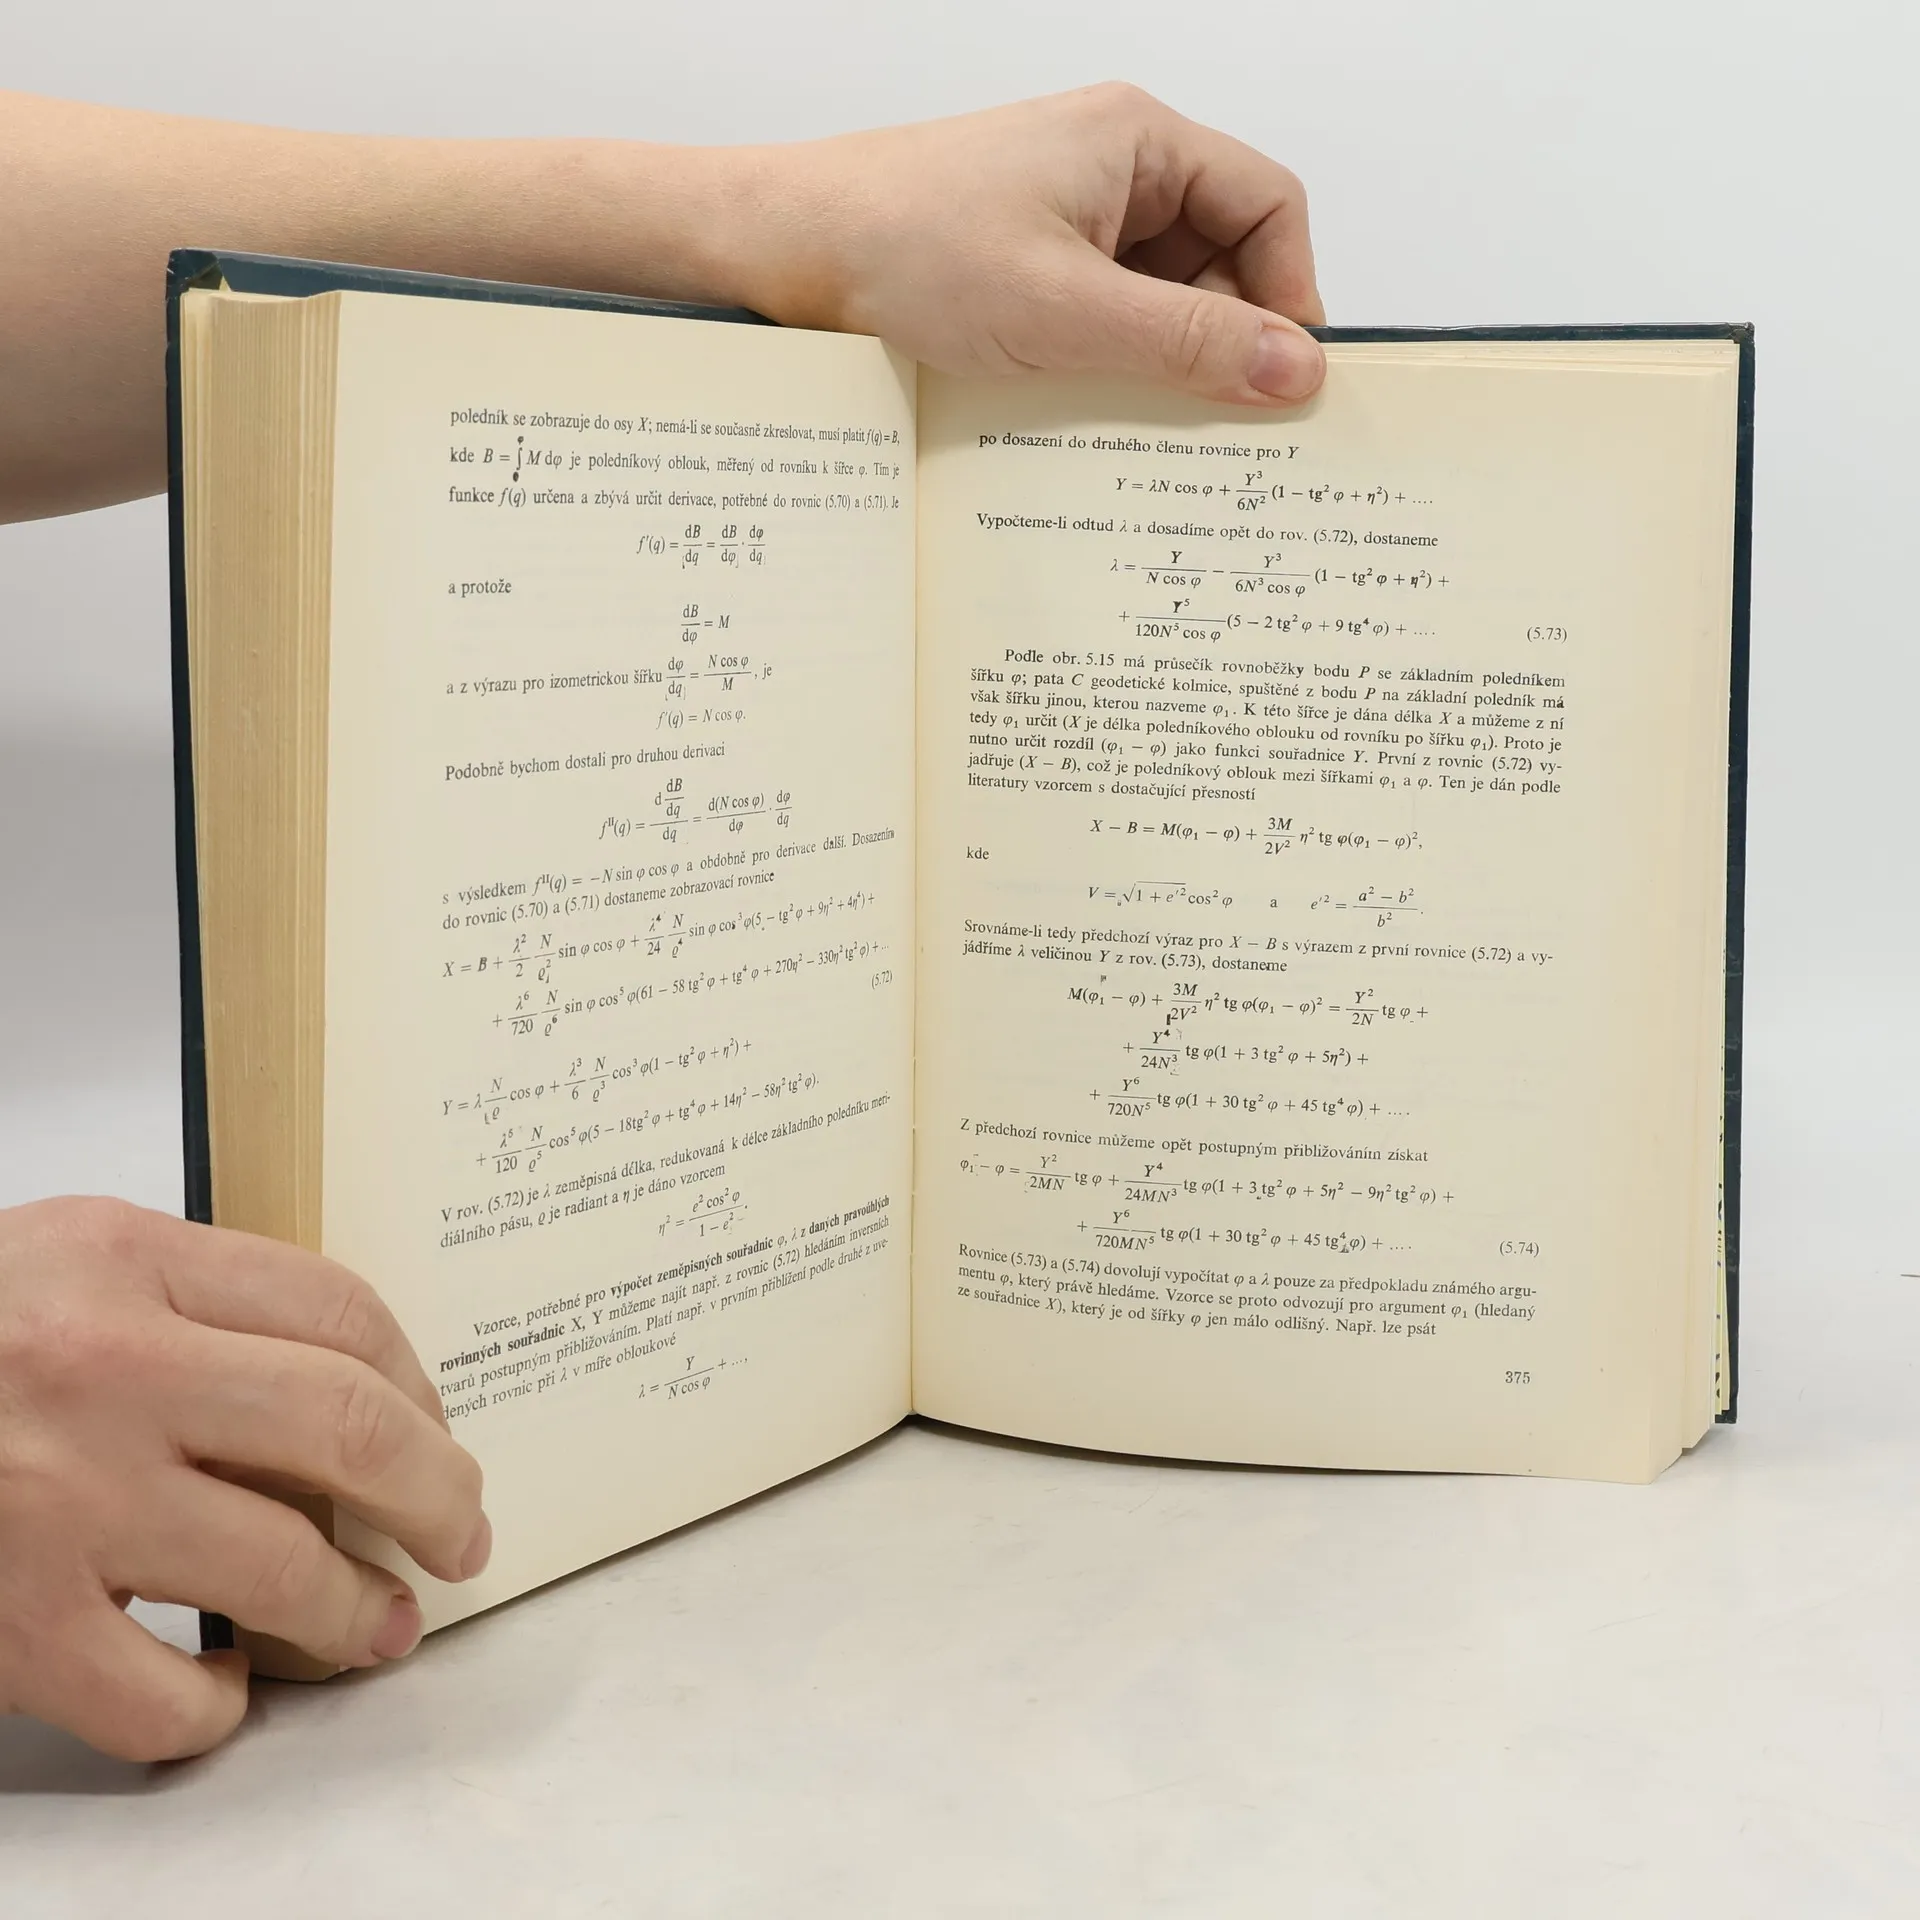 poledník se zobrazuje do osy X; nemá-li se současně zkreslovat, musí platit f(q) = B,
kde B = ∫₀^φ M dφ je poledníkový oblouk, měřený od rovníku k šířce φ. Tím je
funkce f(q) určena a zbývá určit derivace, potřebné do rovnic (5.70) a (5.71). Je
f′(q) = dB/dq = dB/dφ · dφ/dq
a protože
dB/dφ = M
a z výrazu pro izometrickou šířku dφ/dq = N cos φ/M, je
f′(q) = N cos φ.
Podobně bychom dostali pro druhou derivaci
fᴵᴵ(q) = d(dB/dq)/dq = d(N cos φ)/dφ · dφ/dq
s výsledkem fᴵᴵ(q) = −N sin φ cos φ a obdobně pro derivace další. Dosazením
do rovnic (5.70) a (5.71) dostaneme zobrazovací rovnice
X = B + λ²/2 N/ϱ² sin φ cos φ + λ⁴/24 N/ϱ⁴ sin φ cos³ φ(5 − tg² φ + 9η² + 4η⁴) +
+ λ⁶/720 N/ϱ⁶ sin φ cos⁵ φ(61 − 58 tg² φ + tg⁴ φ + 270η² − 330η² tg² φ) + ...
(5.72)
Y = λ N/ϱ cos φ + λ³/6 N/ϱ³ cos³ φ(1 − tg² φ + η²) +
+ λ⁵/120 N/ϱ⁵ cos⁵ φ(5 − 18tg² φ + tg⁴ φ + 14η² − 58η² tg² φ).
V rov. (5.72) je λ zeměpisná délka, redukovaná k délce základního poledníku meri-
diálního pásu, ϱ je radiant a η je dáno vzorcem
η² = e² cos² φ/1 − e² .
Vzorce, potřebné pro výpočet zeměpisných souřadnic φ, λ z daných pravoúhlých
rovinných souřadnic X, Y můžeme najít např. z rovnic (5.72) hledáním inversních
tvarů postupným přibližováním. Platí např. v prvním přiblížení podle druhé z uve-
dených rovnic při λ v míře obloukové
λ = Y/N cos φ + ...,
po dosazení do druhého členu rovnice pro Y
Y = λN cos φ + Y³/6N² (1 − tg² φ + η²) + ....
Vypočteme-li odtud λ a dosadíme opět do rov. (5.72), dostaneme
λ = Y/N cos φ − Y³/6N³ cos φ (1 − tg² φ + η²) +
+ Y⁵/120N⁵ cos φ (5 − 2 tg² φ + 9 tg⁴ φ) + .... (5.73)
Podle obr. 5.15 má průsečík rovnoběžky bodu P se základním poledníkem
šířku φ; pata C geodetické kolmice, spuštěné z bodu P na základní poledník má
však šířku jinou, kterou nazveme φ₁. K této šířce je dána délka X a můžeme z ní
tedy φ₁ určit (X je délka poledníkového oblouku od rovníku po šířku φ₁). Proto je
nutno určit rozdíl (φ₁ − φ) jako funkci souřadnice Y. První z rovnic (5.72) vy-
jadřuje (X − B), což je poledníkový oblouk mezi šířkami φ₁ a φ. Ten je dán podle
literatury vzorcem s dostačující přesností
X − B = M(φ₁ − φ) + 3M/2V² η² tg φ(φ₁ − φ)²,
kde
V = √1 + e′² cos² φ a e′² = a² − b²/b² .
Srovnáme-li tedy předchozí výraz pro X − B s výrazem z první rovnice (5.72) a vy-
jádříme λ veličinou Y z rov. (5.73), dostaneme
M(φ₁ − φ) + 3M/2V² η² tg φ(φ₁ − φ)² = Y²/2N tg φ +
+ Y⁴/24N³ tg φ(1 + 3 tg² φ + 5η²) +
+ Y⁶/720N⁵ tg φ(1 + 30 tg² φ + 45 tg⁴ φ) + ....
Z předchozí rovnice můžeme opět postupným přibližováním získat
φ₁ − φ = Y²/2MN tg φ + Y⁴/24MN³ tg φ(1 + 3 tg² φ + 5η² − 9η² tg² φ) +
+ Y⁶/720MN⁵ tg φ(1 + 30 tg² φ + 45 tg⁴ φ) + .... (5.74)
Rovnice (5.73) a (5.74) dovolují vypočítat φ a λ pouze za předpokladu známého argu-
mentu φ, který právě hledáme. Vzorce se proto odvozují pro argument φ₁ (hledaný
ze souřadnice X), který je od šířky φ jen málo odlišný. Např. lze psát
375